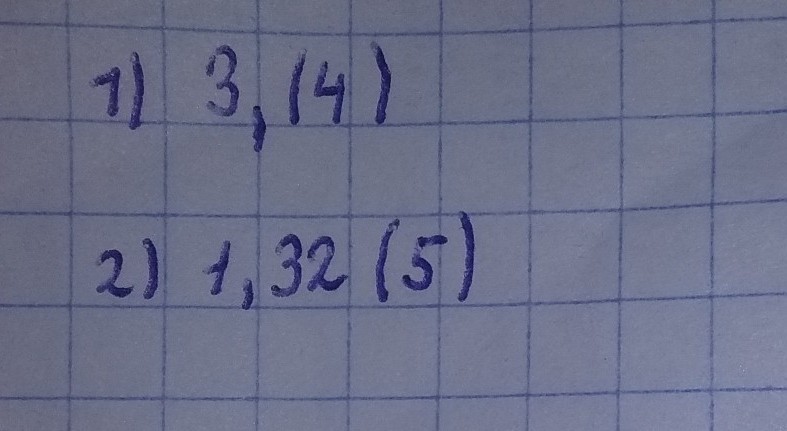 1) 3,(4)
2) 1,32(5)